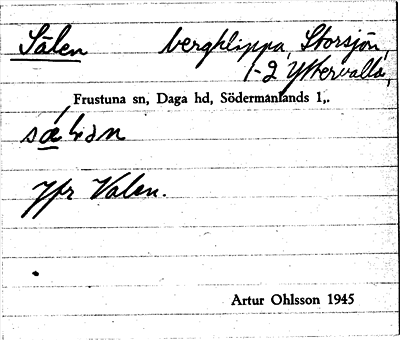 Sälen bergklippa, Storsjön,
1-2 Yttervalla,
Frustuna sn, Daga hd, Södermanlands l.
Jfr Valen.
Artur Ohlsson 1945